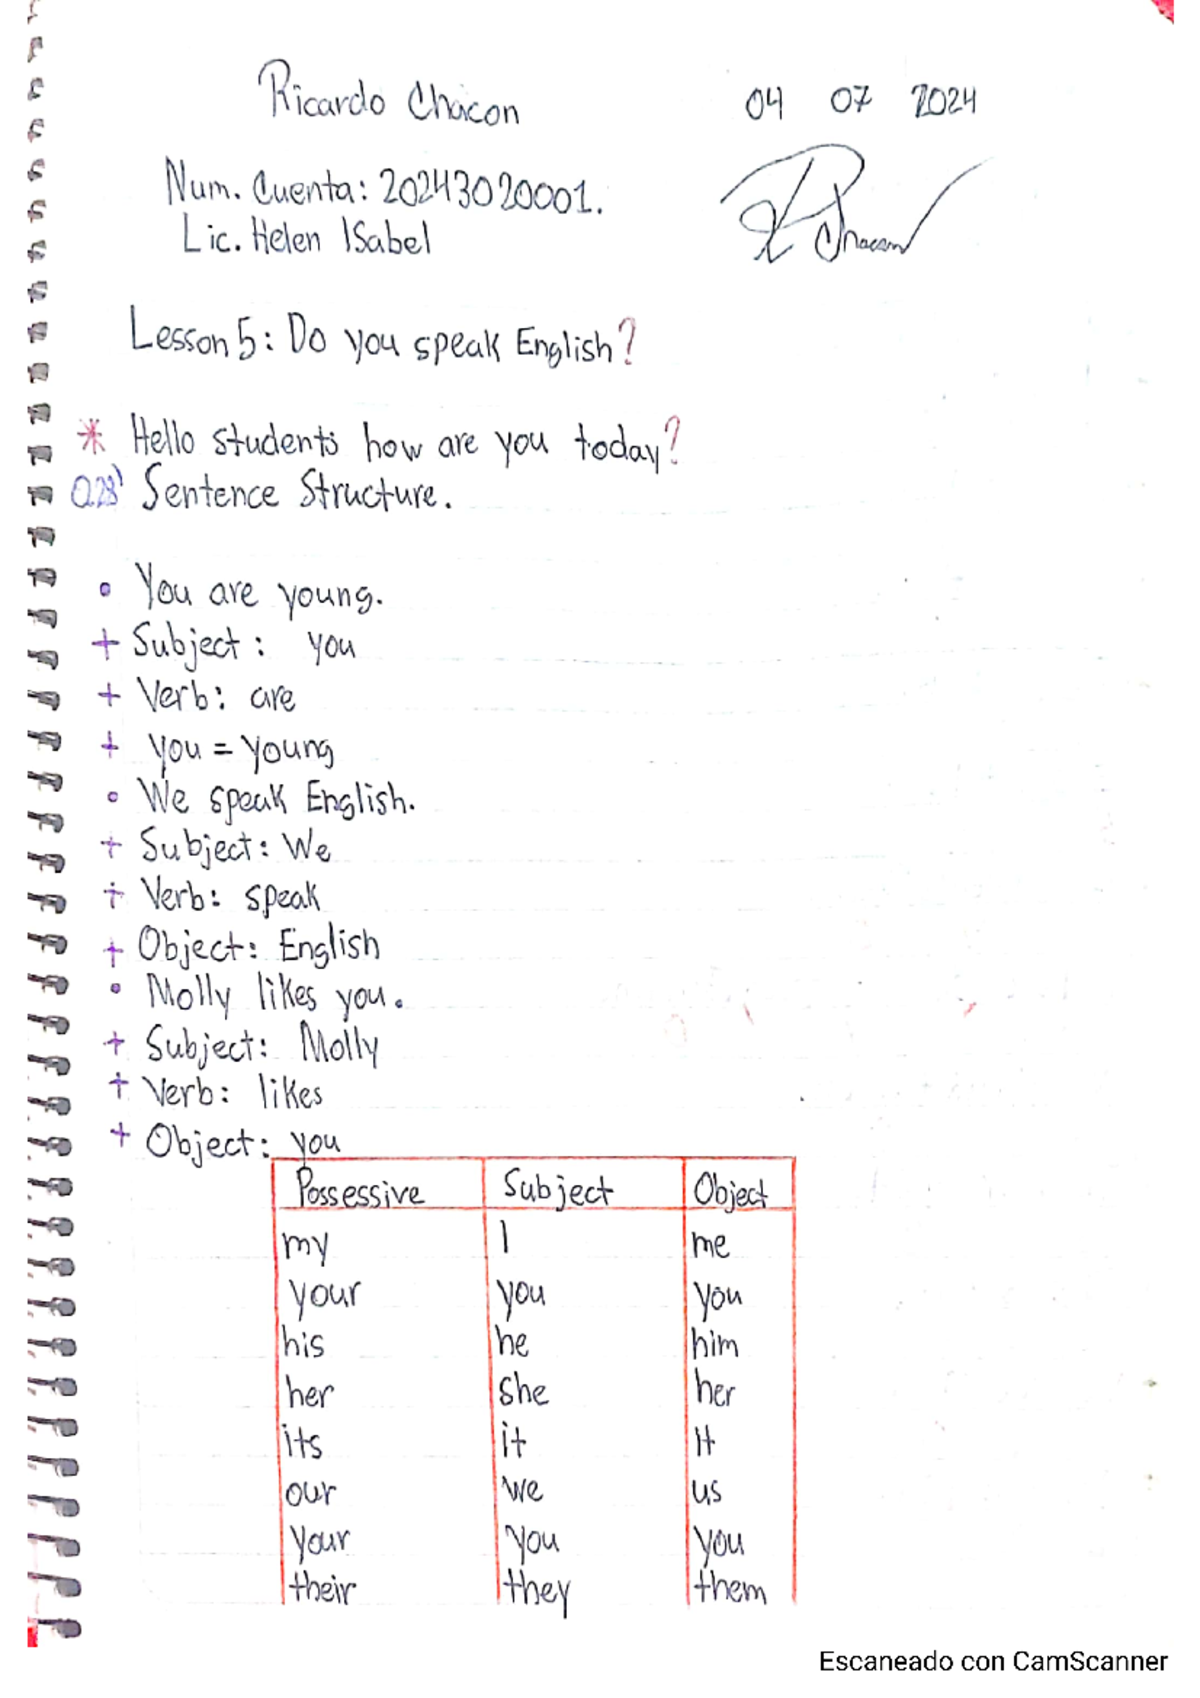 Ricardo Chacon 04 07 2024
Num. Cuenta: 20243020001.
Lic. Helen Isabel
R Chacon
Lesson 5: Do you speak English?
* Hello students how are you today?
0.28' Sentence Structure.
• You are young.
+ Subject: you
+ Verb: are
+ you = young
• We speak English.
+ Subject: We
+ Verb: speak
+ Object: English
• Molly likes you.
+ Subject: Molly
+ Verb: likes
+ Object: you
Possessive Subject Object
my I me
your you you
his he him
her she her
its it It
our we us
your you you
their they them
Escaneado con CamScanner